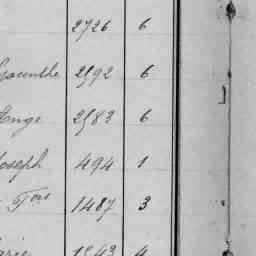 2726 6
Hyacinthe 2592 6
Ange 2583 6
Joseph 494 1
Fois 1487 3
1543 4